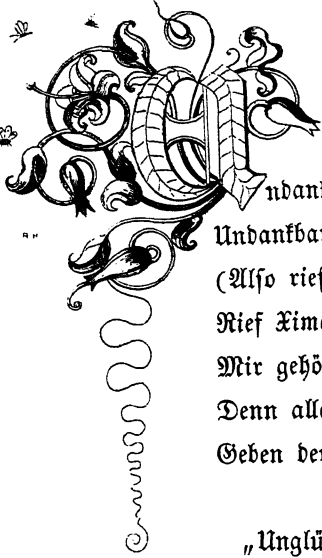 Undank
Undankbar
(Also rief
Rief Xime
Mir gehö
Denn alle
Geben der
„Unglü